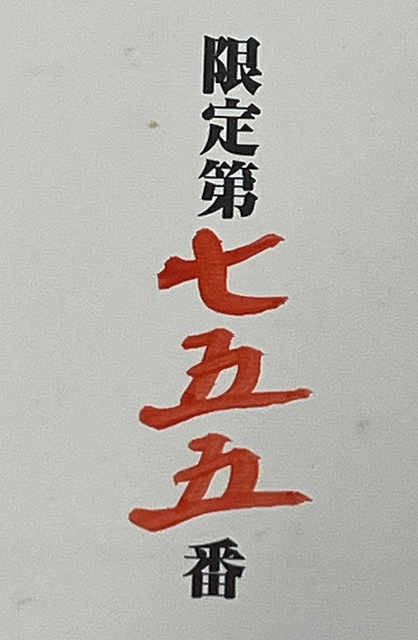 限定第七五五番